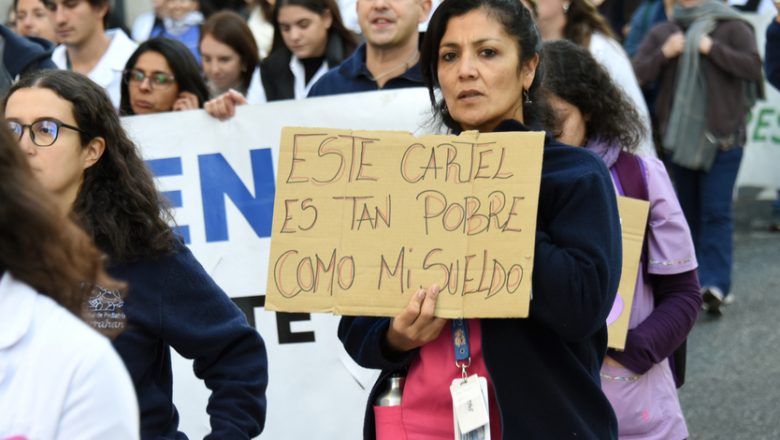 ESTE CARTEL
ES TAN POBRE
COMO Mi SUELDO
EN
TE